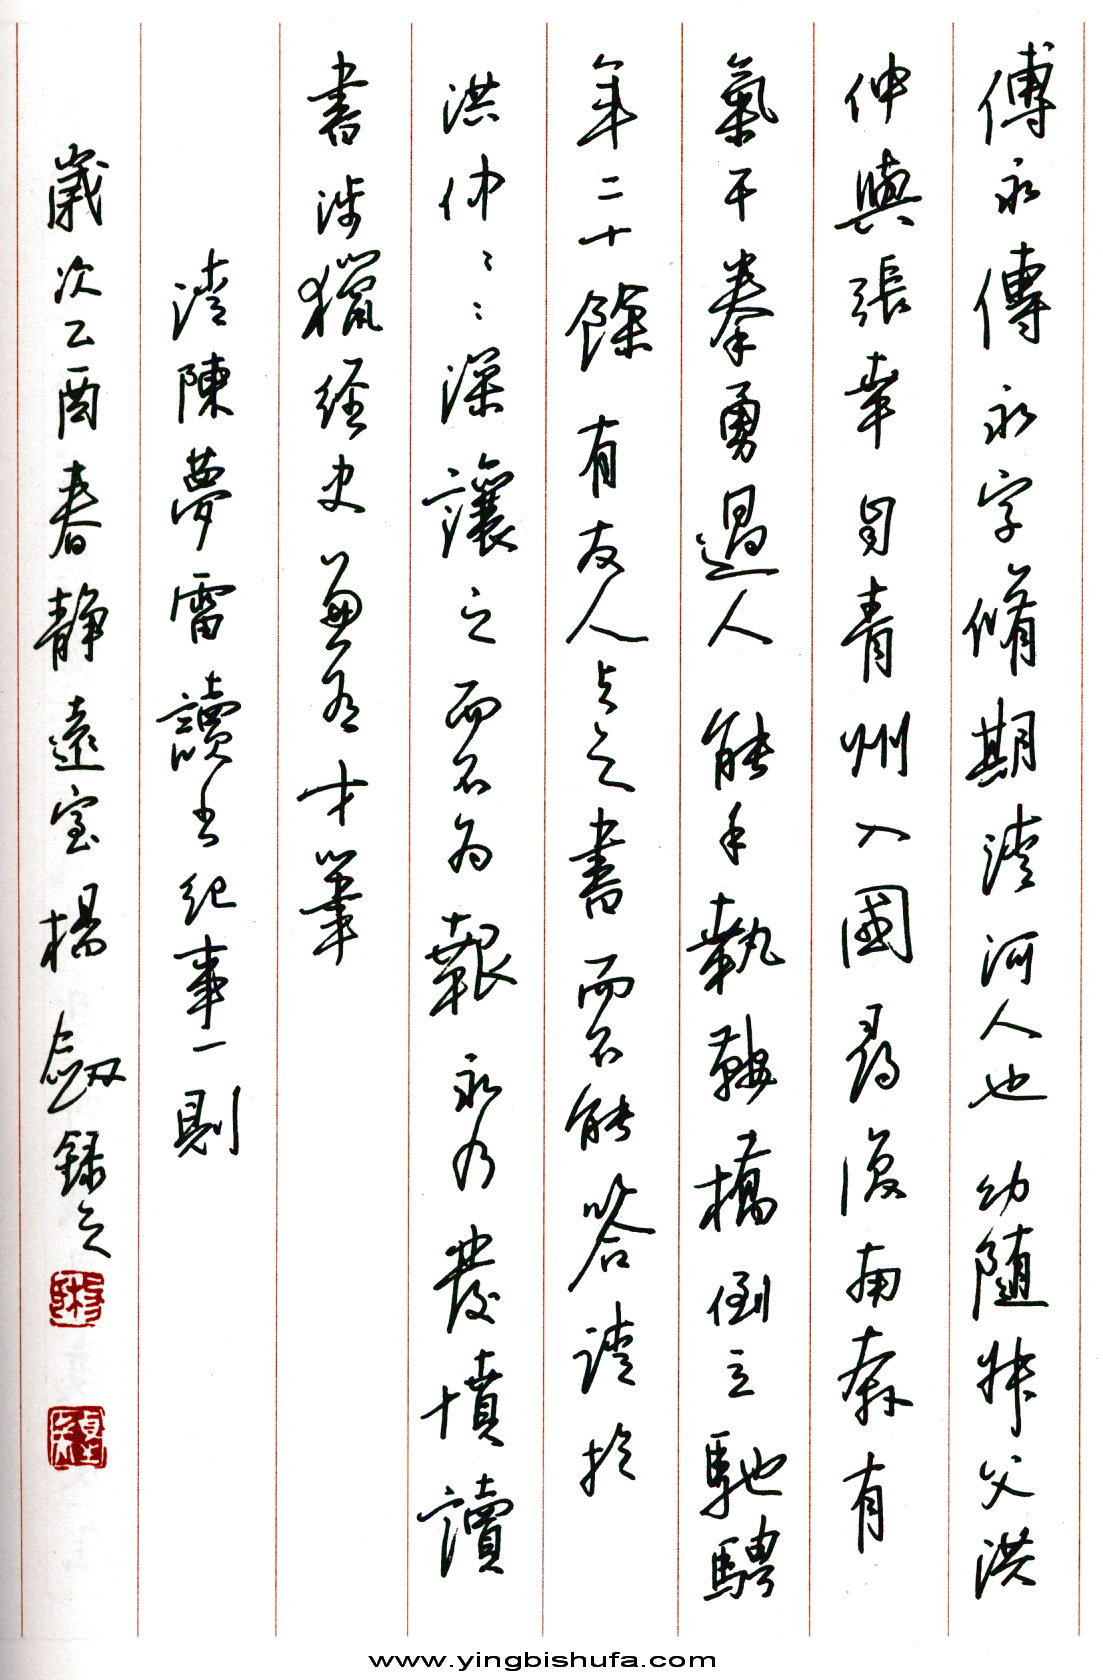 傅永傳永字脩期清河人也幼随叔父洪
仲與張幸自青州入國尋復南奔有
氣干拳勇過人能手執鞍橋倒立馳騁
年二十餘有友人与之書而不能答請於
洪仲〻〻深讓之而不为報永乃發憤讀
書涉獵经史兼有才筆
清陳夢雷讀书纪事一則
歲次乙酉春静遠室楊劔録之
www.yingbishufa.com